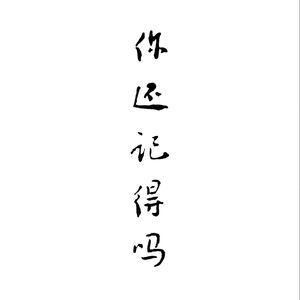 你还记得吗